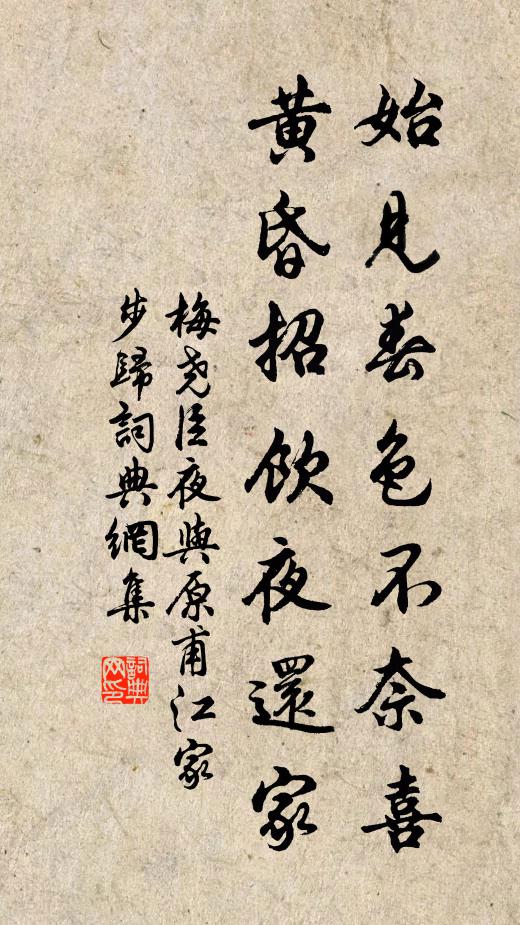 始見春色不奈喜
黃昏招飲夜還家
梅堯臣夜與原甫江家
步歸詞典網集
詞典
网印